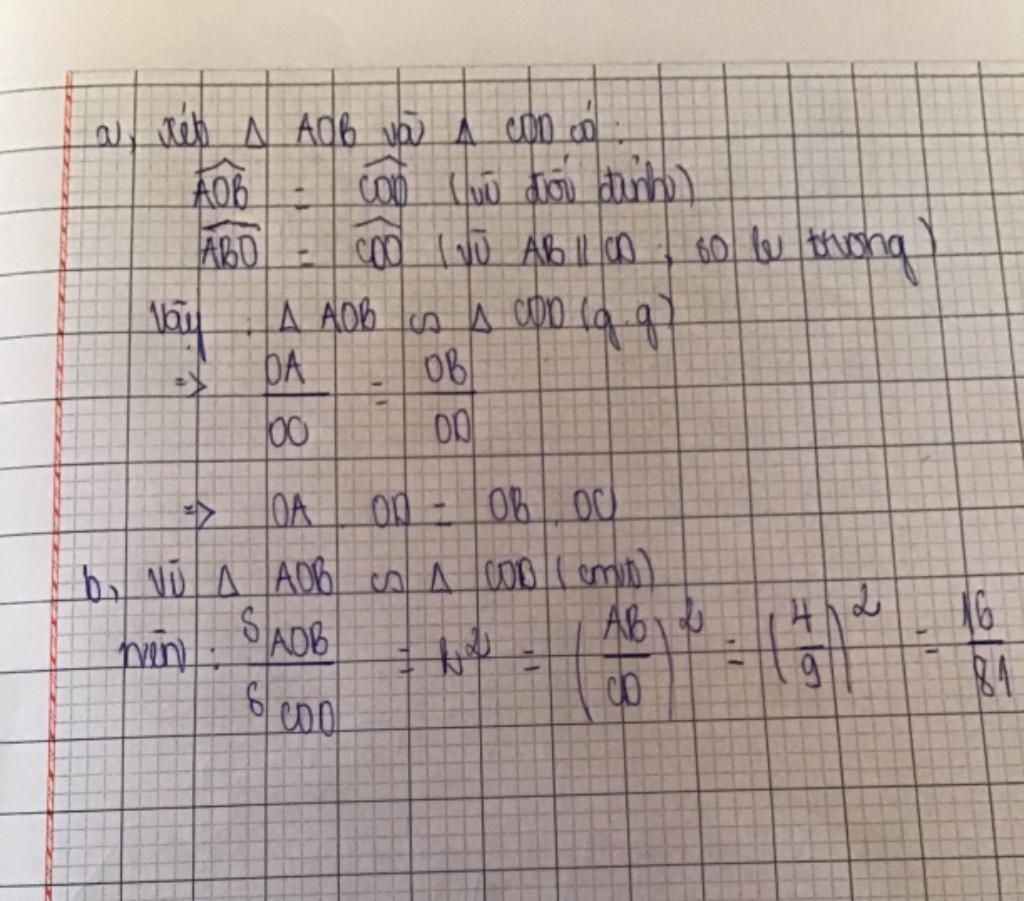 a, xét Δ AOB và Δ COD có:
AOB = COD (vì đối đỉnh)
ABO = CDO (vì AB // CD, so le trong)
Vậy: Δ AOB ∽ Δ COD (g.g)
=> OA/OC = OB/OD
=> OA . OD = OB . OC
b, Vì Δ AOB ∽ Δ COD (cmt)
nên: S AOB / S COD = k² = (AB/CD)² = (4/9)² = 16/81